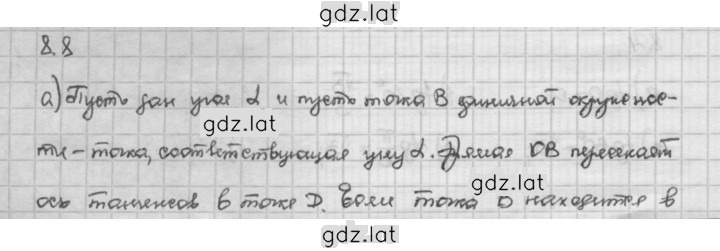 gdz.lat
8.8
а) Пусть дан угол α и пусть точка B единичной окружнос-
gdz.lat
ти - точка, соответствующая углу α. Прямая OB пересекает
gdz.lat
ось тангенсов в точке D. Если точка D находится в
gdz.lat